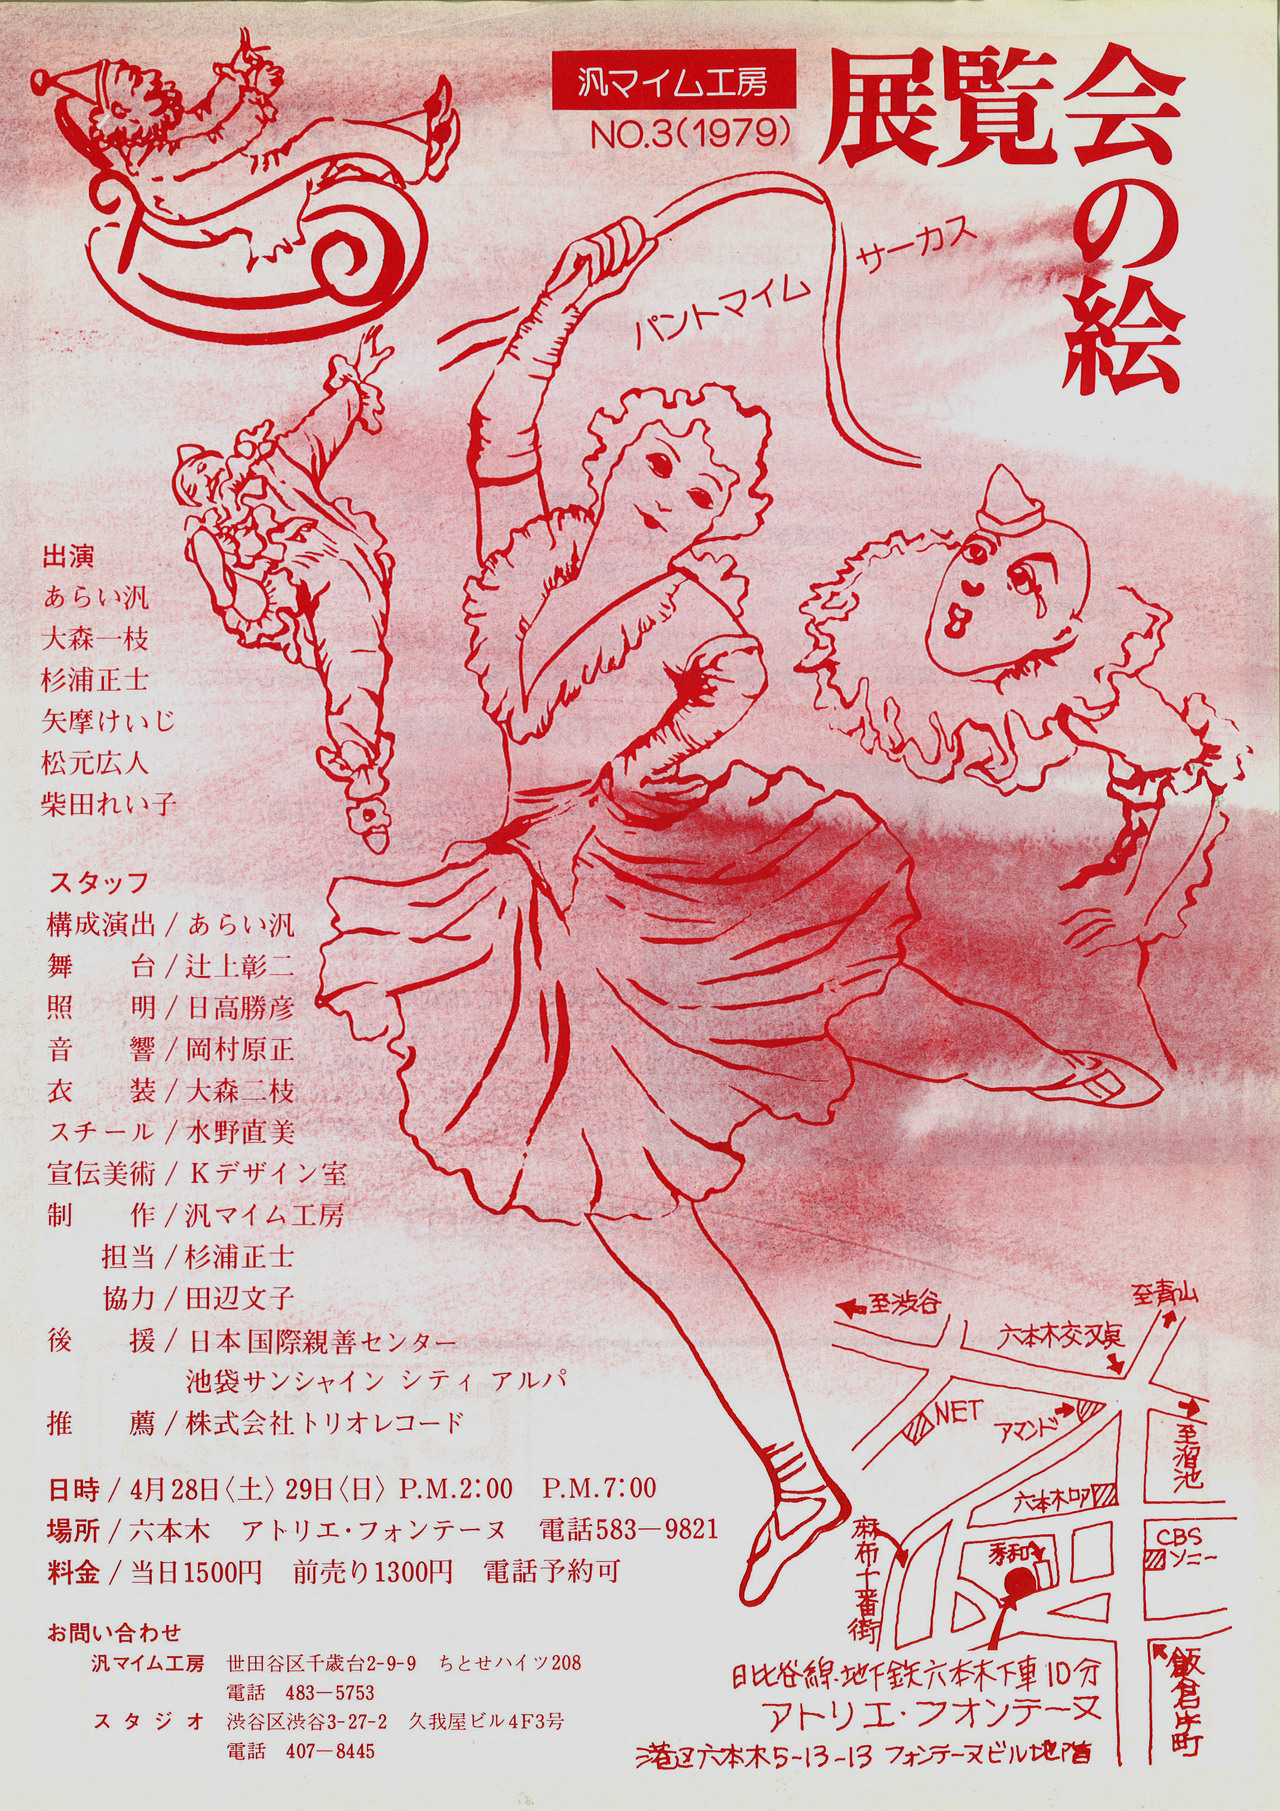 汎マイム工房
NO.3(1979)
展覧会の絵
パントマイム サーカス
出演
あらい汎
大森一枝
杉浦正士
矢摩けいじ
松元広人
柴田れい子
スタッフ
構成演出/あらい汎
舞 台/辻上彰二
照 明/日高勝彦
音 響/岡村原正
衣 装/大森二枝
スチール/水野直美
宣伝美術/Kデザイン室
制 作/汎マイム工房
担当/杉浦正士
協力/田辺文子
後 援/日本国際親善センター
池袋サンシャイン シティ アルパ
推 薦/株式会社トリオレコード
日時/4月28日〈土〉29日〈日〉P.M.2:00 P.M.7:00
場所/六本木 アトリエ・フォンテーヌ 電話583—9821
料金/当日1500円 前売り1300円 電話予約可
お問い合わせ
汎マイム工房 世田谷区千歳台2-9-9 ちとせハイツ208
電話 483—5753
スタジオ 渋谷区渋谷3-27-2 久我屋ビル4F3号
電話 407—8445
至渋谷
至青山
六本木交叉点
NET
アマンド
至溜池
六本木ロア
CBS
ソニー
秀和
麻布十番街
飯倉片町
日比谷線・地下鉄六本木下車10分
アトリエ・フォンテーヌ
港区六本木5-13-13 フォンテーヌビル地階